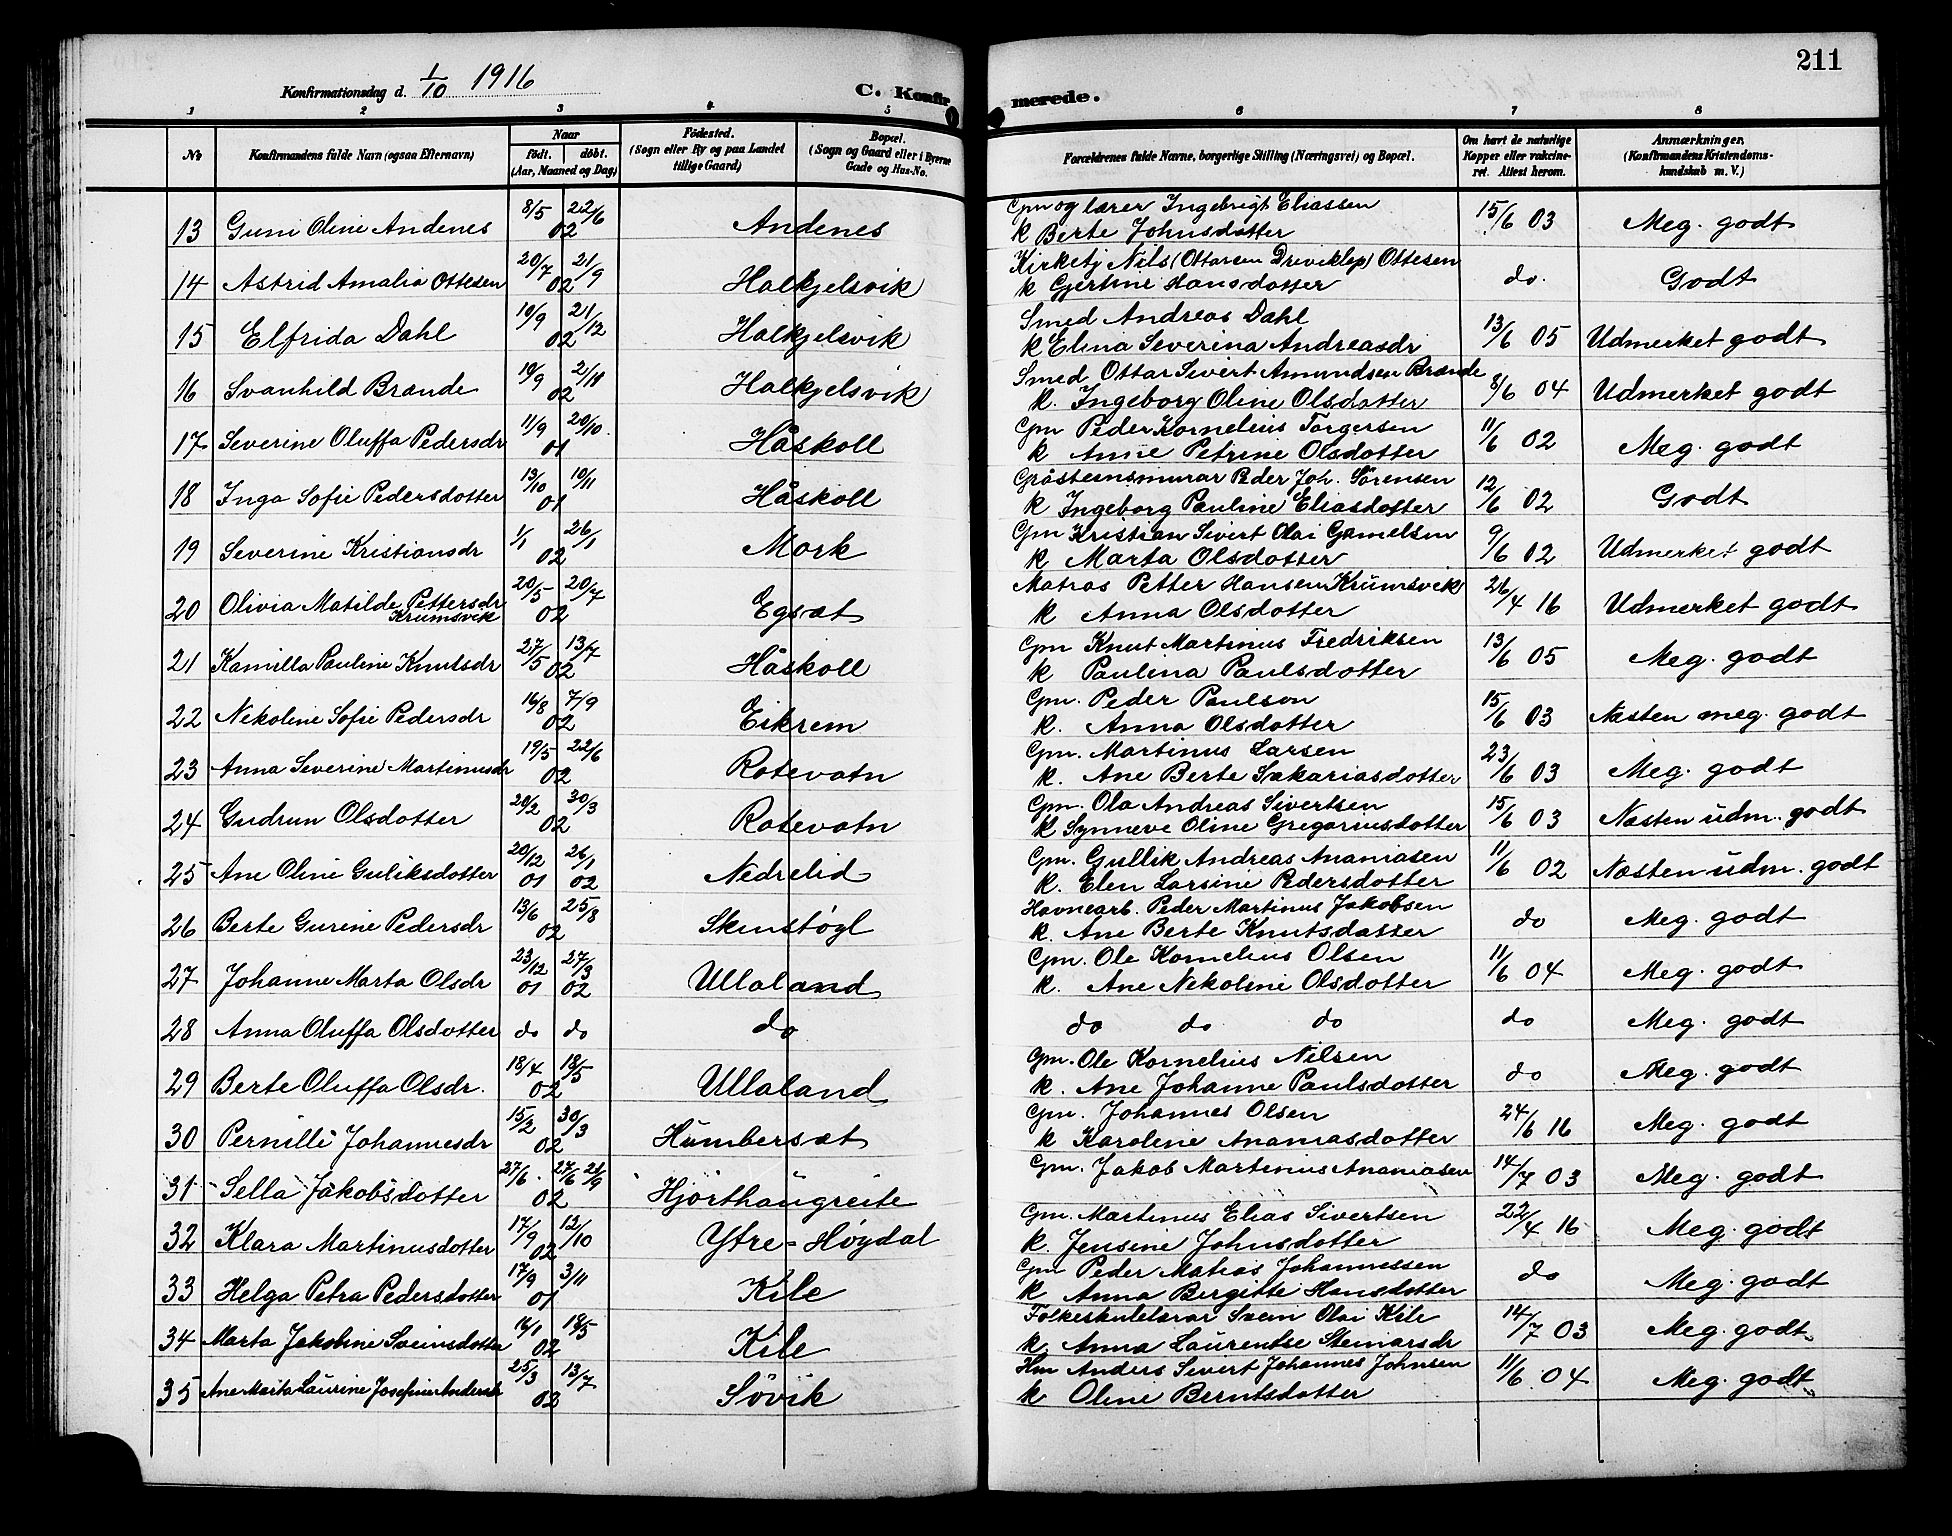 211
Konfirmationsdag d. 1/10 1916
C. Konfirmerede.
1 2 3 4 5 6 7 8
No
Konfirmandens fulde Navn (ogsaa Efternavn)
Naar
födt. döbt.
(Aar, Maaned og Dag)
Födested.
(Sogn eller By og paa Landet tillige Gaard)
Bopæl.
(Sogn og Gaard eller i Byerne Gade og Hus-No.
Forældrenes fulde Navne, borgerlige Stilling (Næringsvei) og Bopæl.
Om havt de naturlige Kopper eller vakcineret. Attest herom.
Anmærkninger.
(Konfirmandens Kristendomskundskab m. V.)
13 Guni Oline Andenes 8/5 22/6 02 Andenes Gpm og lærer Ingebrigt Eliassen 15/6 03 Meg. godt
k Berte Johnsdotter
14 Astrid Amalia Ottesen 20/7 21/9 02 Halkjelsvik Kirketj Nils (Ottarsen Dreviklep) Ottesen do. Godt
k Gjertine Hansdotter
15 Elfrida Dahl 10/9 21/12 02 Halkjelsvik Smed Andreas Dahl 13/6 05 Udmerket godt
k Elina Severina Andreasdr
16 Svanhild Brande 19/9 2/11 02 Halkjelsvik Smed Ottar Sivert Amundsen Brande 8/6 04 Udmerket godt
k. Ingeborg Oline Olsdotter
17 Severine Oluffa Pedersdr 11/9 20/10. 01 Håskoll Gpm Peder Kornelius Torgersen 11/6 02 Meg. godt
k Anne Petrine Olsdotter
18 Inga Sofie Pedersdotter 13/10 10/11 01 Håskoll Gråsteinsmurar Peder Joh. Sörensen 12/6 02 Godt
k Ingeborg Pauline Eliasdotter
19 Severine Kristiansdr 1/1 26/1 02 Mork Gpm Kristian Sivert Olai Gamelsen 9/6 02 Udmerket godt
k Marta Olsdotter
20 Olivia Matilde Pettersdr Krumsvik 20/5 20/7 02 Egsæt Matros Petter Hansen Krumsvik 26/4 16 Udmerket godt
k Anna Olsdotter
21 Kamilla Pauline Knutsdr 27/5 13/7 02 Håskoll Gpm Knut Martinus Fredriksen 13/6 05 Meg. godt
k Paulina Paulsdotter
22 Nekoline Sofie Pedersdr 16/8 7/9 02 Eikrem Gpm. Peder Paulson 15/6 03 Næsten meg. godt
k. Anna Olsdotter
23 Anna Severine Martinusdr 19/5 22/6 02 Rotevatn Gpm. Martinus Larsen 23/6 03 Meg. godt
k. Ane Berte Sakariasdotter
24 Gudrun Olsdotter 20/2 30/3 02 Rotevatn Gpm. Ola Andreas Sivertsen 15/6 03 Næsten udm. godt
k Synneve Oline Gregoriusdotter
25 Ane Oline Guliksdotter 20/12 01 26/1 02 Nedrelid Gpm. Gullik Andreas Ananiasen 11/6 02 Næsten udm. godt
k. Elen Larsine Pedersdotter
26 Berte Gurine Pedersdr 13/6 25/8 02 Skinstøgl Havnearb. Peder Martinus Jakobsen do Meg. godt
k. Ane Berte Knutsdatter
27 Johanne Marta Olsdr 23/12 01 27/3 02 Ullaland Gpm. Ole Kornelius Olsen 11/6 04 Meg. godt
k. Ane Nekoline Olsdotter
28 Anna Oluffa Olsdotter do do do do do do do Meg. godt
29 Berte Oluffa Olsdr. 18/4 18/5 02 Ullaland Gpm. Ole Kornelius Nilsen do Meg. godt
k. Ane Johanne Paulsdotter
30 Pernille Johannesdr 15/2 30/3 02 Humbersæt Gpm. Johannes Olsen 24/6 16 Meg. godt
k Karoline Ananiasdotter
31 Sella Jakobsdotter 27/6. 27/6 21/9 02 Hjorthaugreite Gpm. Jakob Martinus Ananiasen 14/7 03 Meg. godt
32 Klara Martinusdotter 17/9 12/10 02 Ytre-Høydal Gpm. Martinus Elias Sivertsen 22/4 16 Meg. godt
k. Jensine Johnsdotter
33 Helga Petra Pedersdotter 17/9 3/11 01 Kile Gpm Peder Matias Johannessen do Meg. godt
k Anna Birgitte Hansdotter
34 Marta Jakobine Sveinsdotter 16/1 18/5 02 Kile Folkeskulelærar Svein Olai Kile 14/7 03 Meg. godt
k Anna Laurentse Steinarsdr
35 Ane Marta Laurine Josefine Andersdr 25/3 13/7 02 Sövik Hm Anders Sivert Johannes Johnsen 11/6 04 Meg. godt
k Oline Berntsdotter